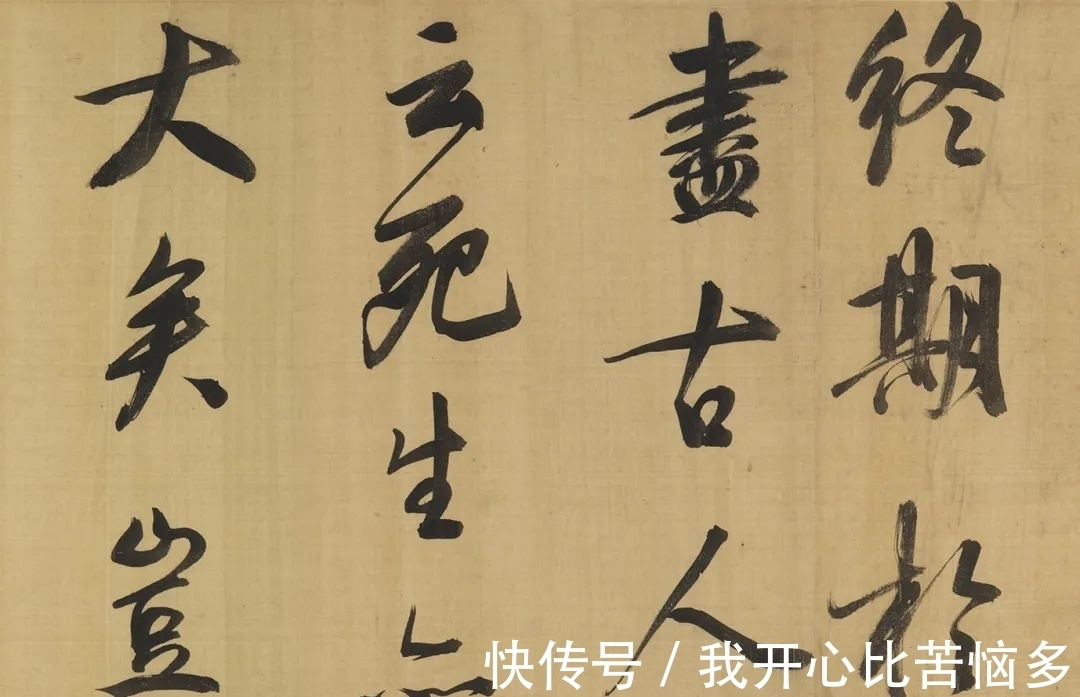 終期於
盡古人
云死生
大矣豈
快传号 / 我开心比苦恼多